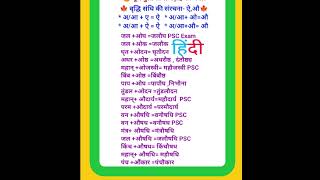 🍁 वृद्धि संधि की संरचना- ऐ,औ🍁
* अ/आ + ए = ऐ * अ/आ+ ओ=औ
* अ/आ + ऐ = ऐ * अ/आ+औ= औ
जल +ओघ =जलौघ PSC Exam
जल +ओक =जलौक
घृत +ओदन= घृतौदन
हिंदी
अधर +ओष्ठ =अधरौष्ठ , दंतौष्ठ्य
महान् +ओजस्वी= महौजस्वी PSC
बिंब +ओष्ठ =बिंबौष्ठ
पाप +ओघ =पापौघ ,निम्नौना
तुंडल +ओदन =तुंडलौदन
महान् +औदार्य=महौदार्य PSC
परम +औदार्य =परमौदार्य
वन +औषधि =वनौषधि PSC
वन +औषध =वनौषध PSC
मंत्र+ औषधि =मंत्रौषधि
जल +औषधि =जलौषधि PSC
किंच +औषध= किंचौषध
महान् +औषधि= महौषधि
पंच +औंकार =पंचौंकार